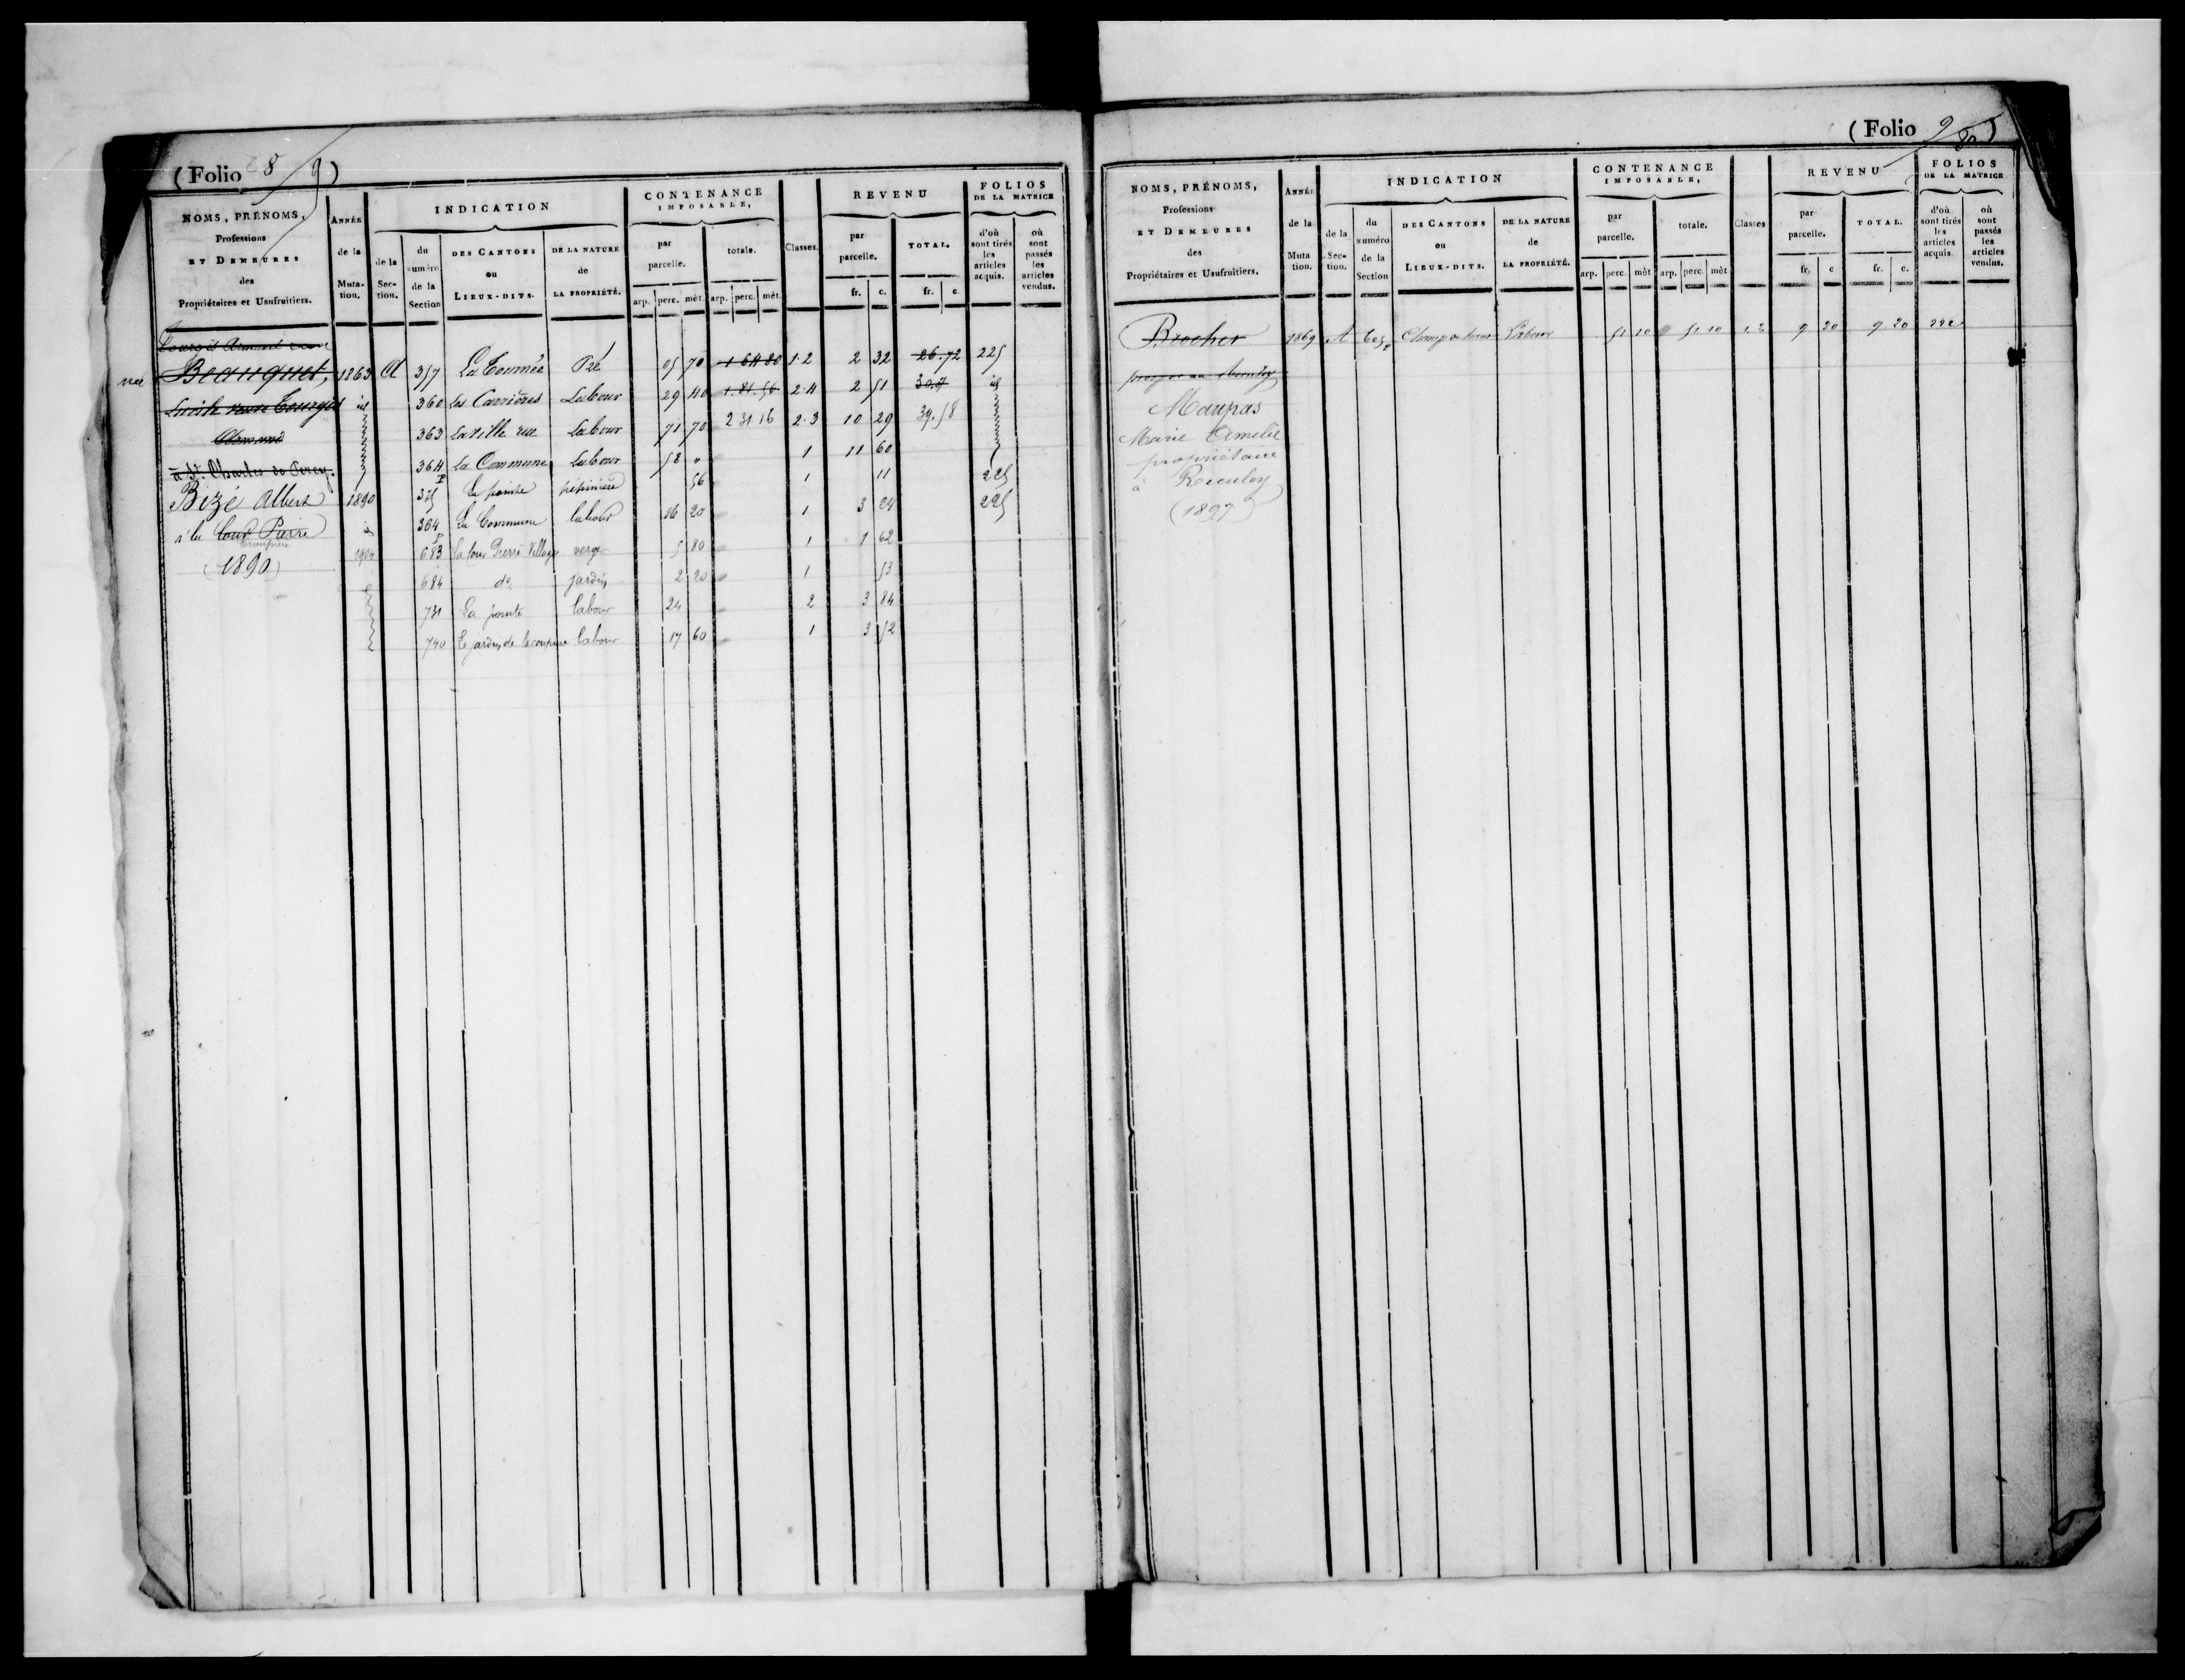 ( Folio 8/9 )
NOMS, PRÉNOMS, Professions ET DEMEURES des Propriétaires et Usufruitiers.
ANNÉE de la Mutation.
INDICATION
de la Section.
du numéro de la Section
DES CANTONS ou LIEUX-DITS.
DE LA NATURE de LA PROPRIÉTÉ.
CONTENANCE IMPOSABLE,
par parcelle.
totale.
arp. perc. mèt. arp. perc. mèt.
Classes.
REVENU
par parcelle.
TOTAL.
fr. c. fr. c.
FOLIOS DE LA MATRICE
d'où sont tirés les articles acquis.
où sont passés les articles vendus.
Beauquet, 1863 A 357 La Tournée Pré 05 70 1 64 80 1.2 2 32 26.72 225
Lucile veuve Tourgis id 360 les Carrières Labour 29 40 1.81.56 2.4 2 51 30.7 id
Armand 363 La Ville rue Labour 71 70 2 31 16 2.3 10 29 39.58
à St. Charles de Percy. 364 P La Commune Labour 58 " 1 11 60
375 La pointe pépinière 56 1 11 225
Bizé Albert 1890 364 P La Commune labour 16 20 1 3 24 225
à la Tour Pierre
Croupière
(1890)
1904 683 La Tour Pierre Village verger 5 80 1 1 62
684 do jardin 2 20 1 53
731 La pointe labour 24 2 3 84
740 Le jardin de la coupure labour 17 60 1 3 52
( Folio 9/80 )
NOMS, PRÉNOMS, Professions ET DEMEURES des Propriétaires et Usufruitiers.
ANNÉE de la Mutation.
INDICATION
de la Section.
du numéro de la Section
DES CANTONS ou LIEUX-DITS.
DE LA NATURE de LA PROPRIÉTÉ.
CONTENANCE IMPOSABLE,
par parcelle.
totale.
arp. perc. mèt arp. perc. mèt
Classes
REVENU
par parcelle.
TOTAL.
fr. c fr. c.
FOLIOS DE LA MATRICE
d'où sont tirés les articles acquis
où sont passés les articles vendus.
Brocher 1869 A 605 P Labour 51 10 51 10 1 2 9 20 9 20 222
Maupas
Marie Amelie
propriétaire
à Reculey
(1897)